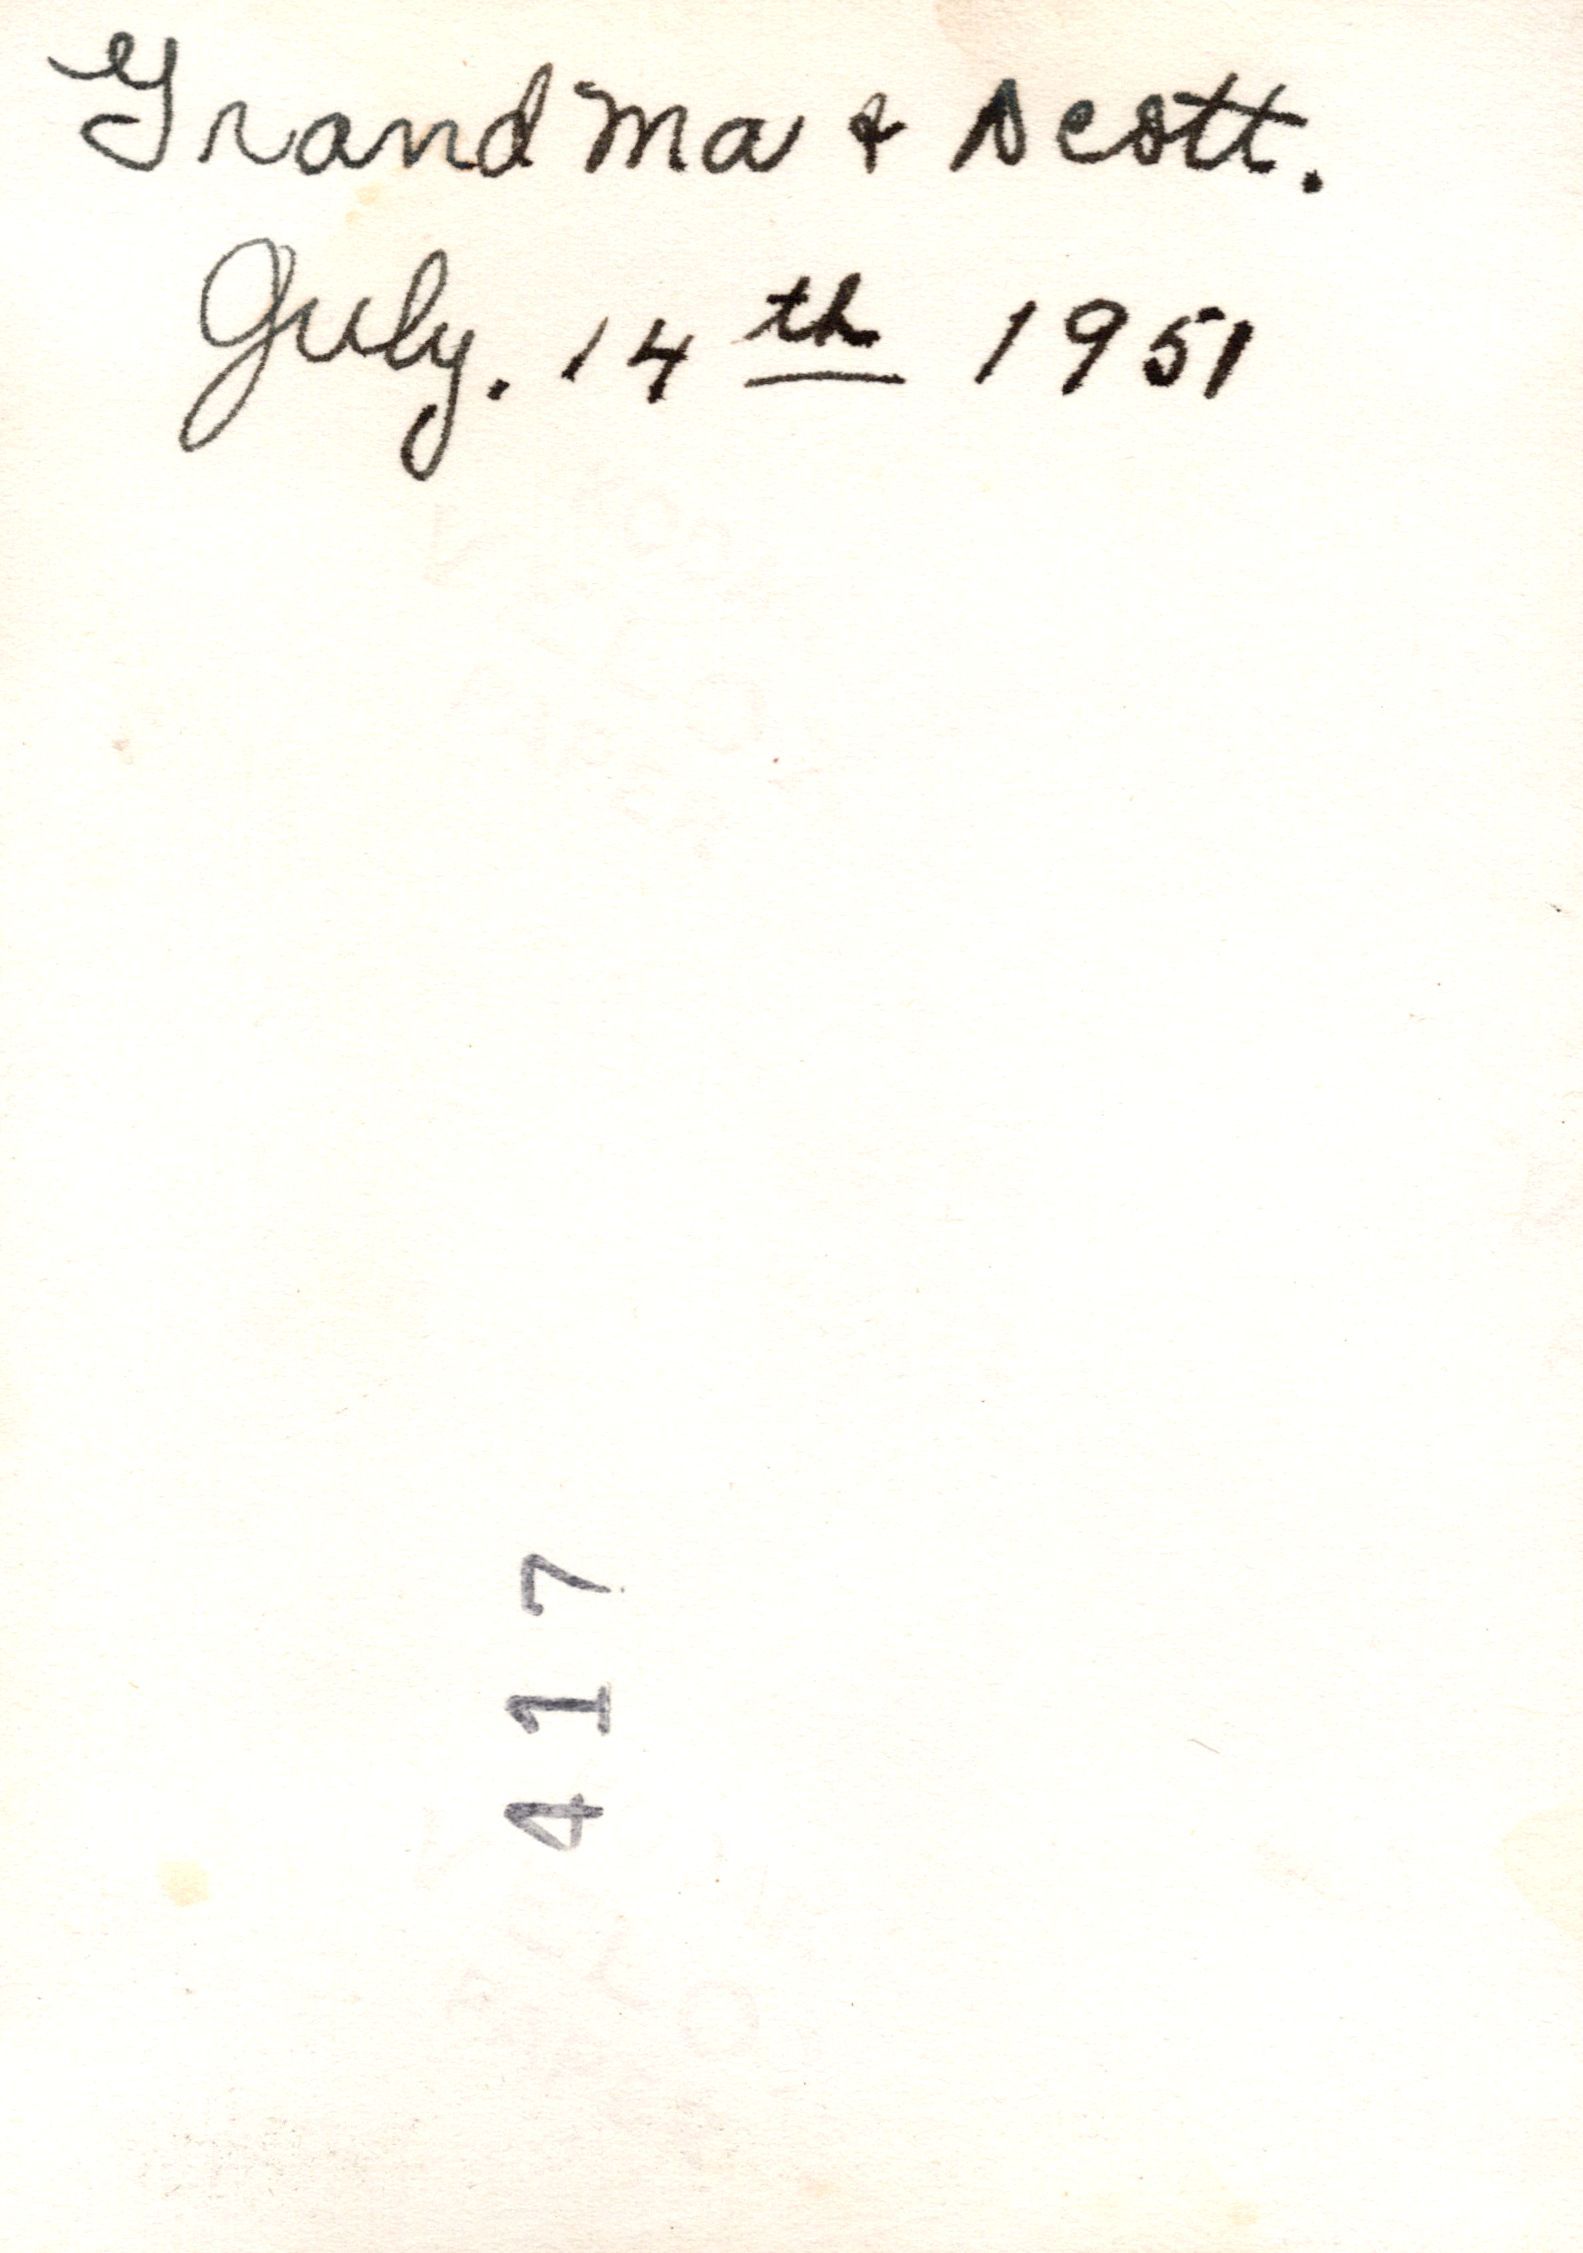 Grand Ma & Scott.
July. 14th 1951
417